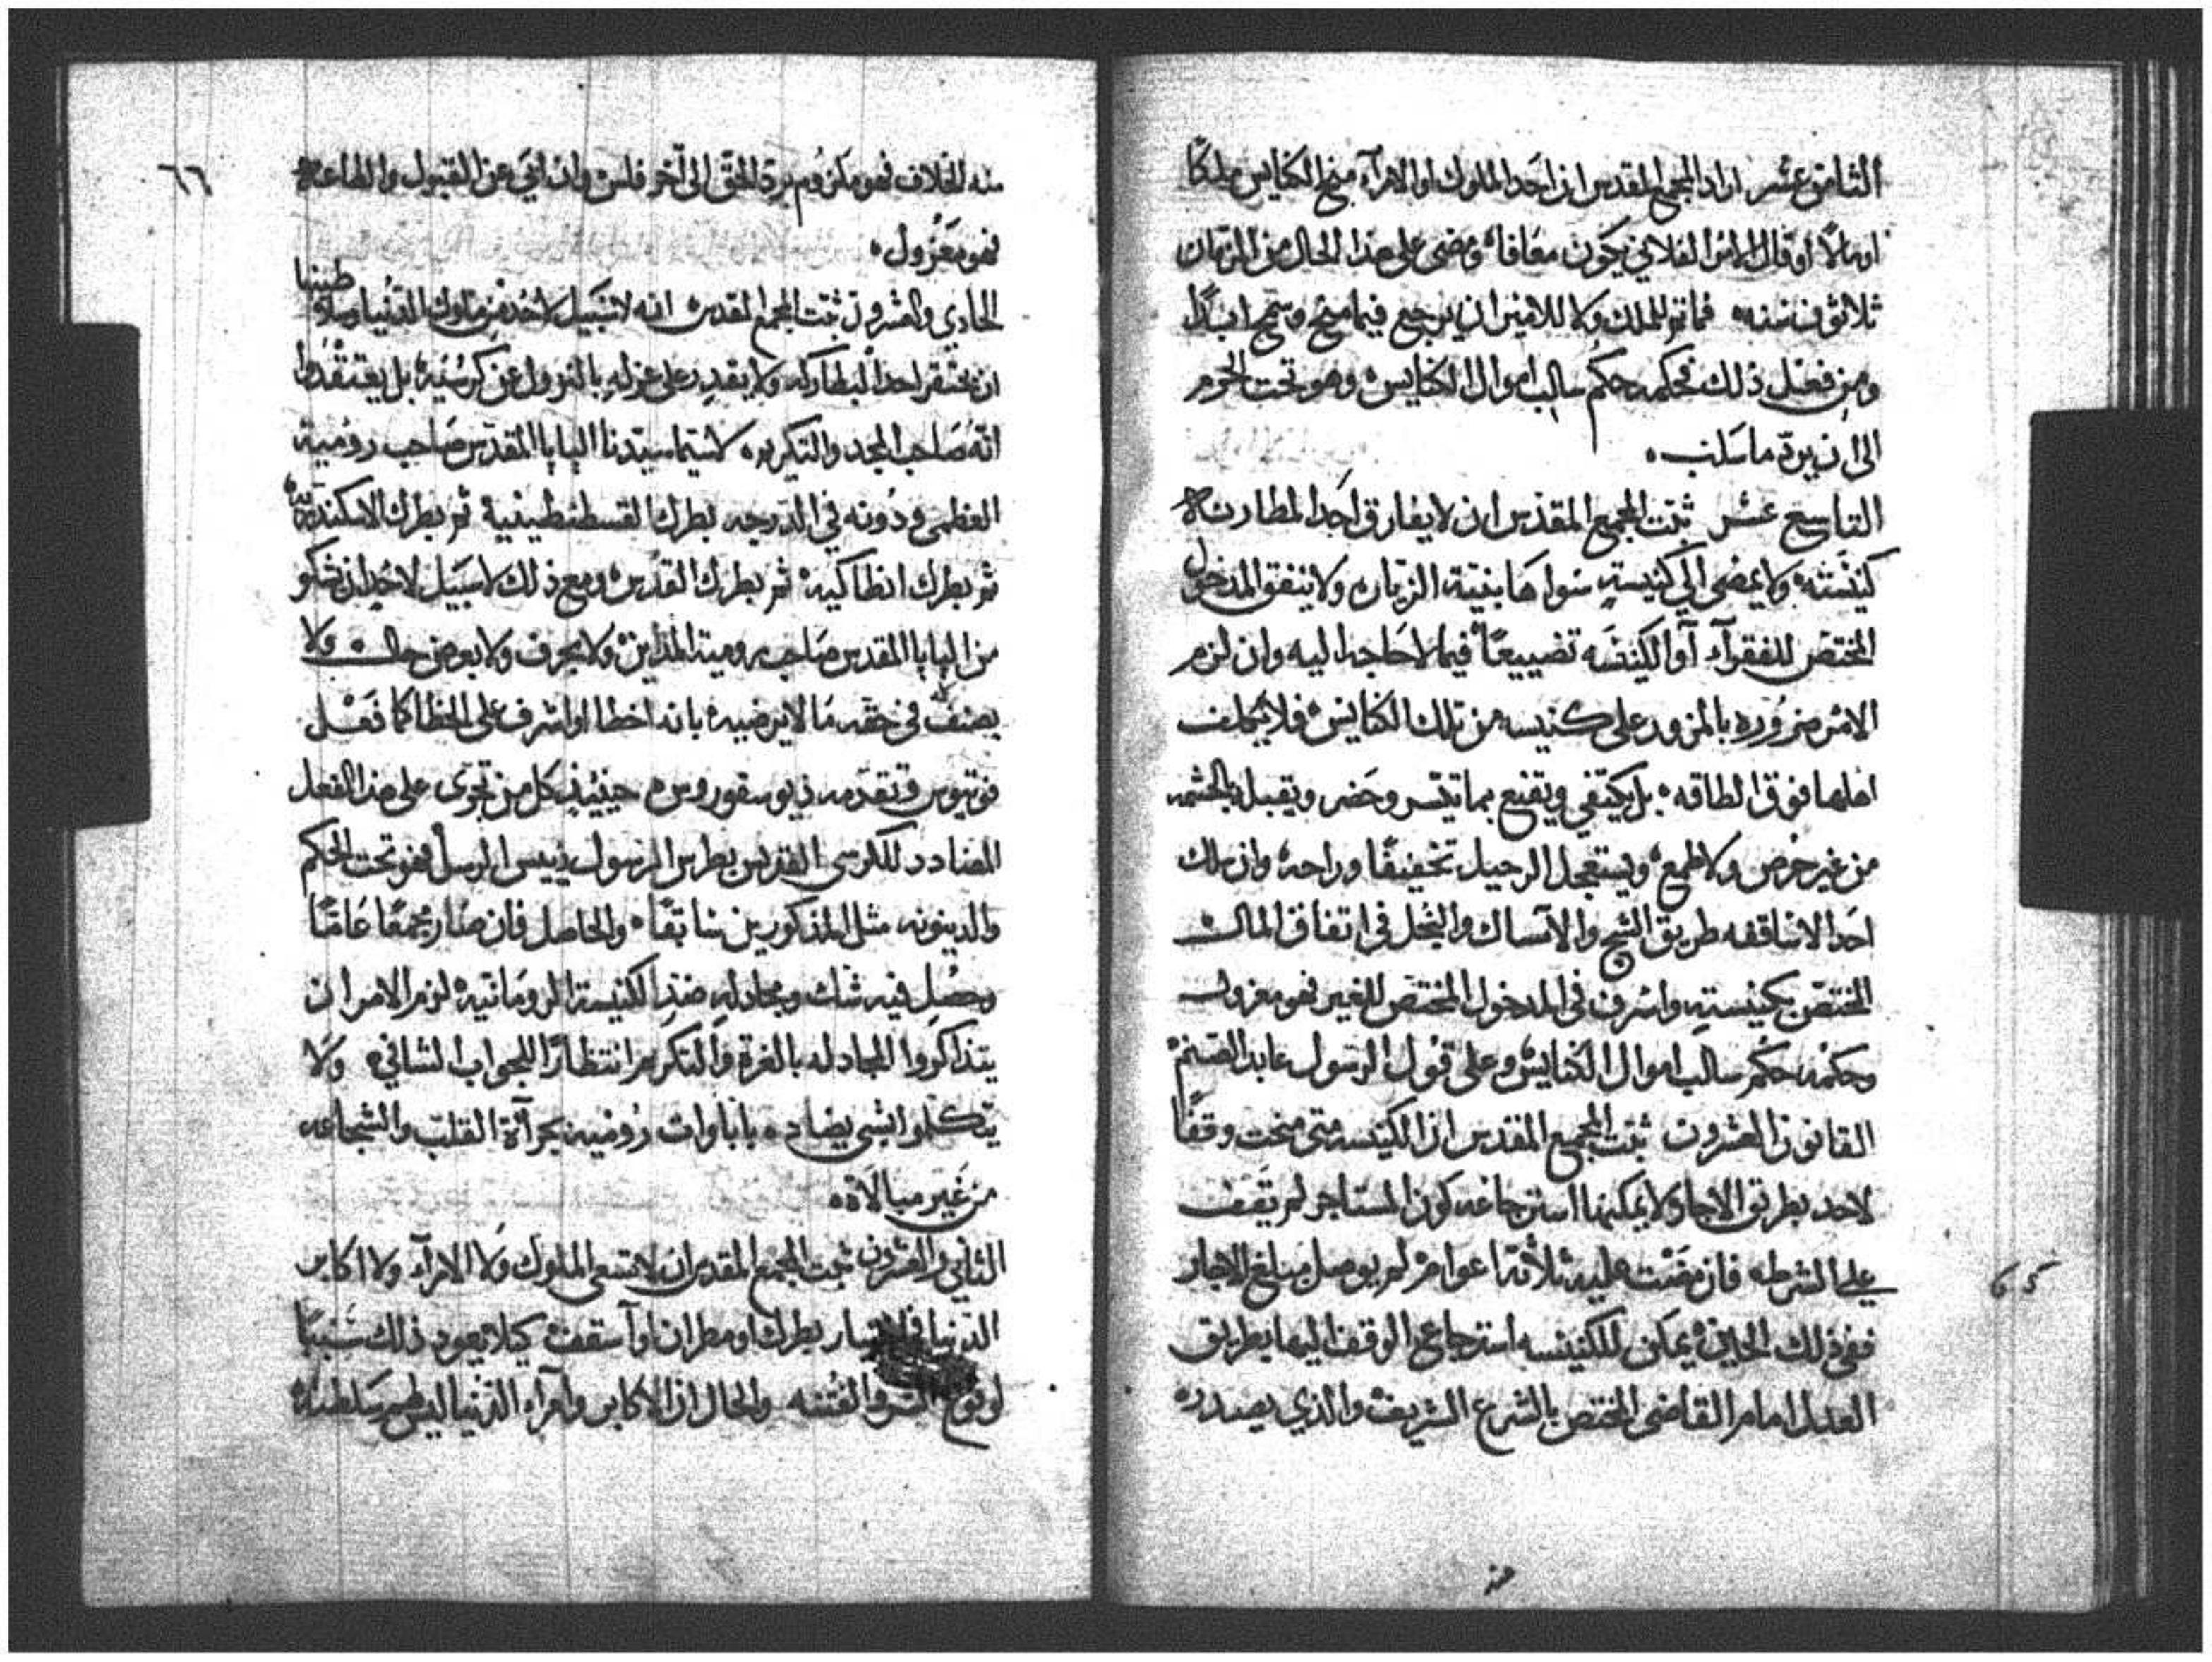 الثامن عشر اراد المجمع المقدس ان احد الملوك او الامرآء منح الكنايس ملكًا
او مالًا او قال الامر الفلاني يكون معافا، ومضى على هذا الحال من الزمان
ثلاثون سنه، فما تم للملك ولا للامير ان يرجع فيما منح وسمح ابدًا
ومن فعل ذلك فحكمه حكم سالب اموال الكنايس، وهو تحت الحرم
الى ان يردّ ما سلب،
التاسع عشر ثبت المجمع المقدس ان لا يفارق احد المطارنه
كنيسته، ولا يمضي الى كنيسةٍ سواها بنية الزياره ولا ينفق المدخول
المختص للفقرآء او الكنيسه تضييعًا فيما لا حاجه اليه وان لزم
الامر ضروره بالمرور على كنيسه من تلك الكنايس، فلا يكلف
اهلها فوق الطاقه، بل يكتفي ويقنع بما تيسر وحضر ويقبله بالحشمه
من غير حرص ولا طمع، ويستعجل الرحيل تخفيفًا وراحه، وان سلك
احد الاساقفه طريق الشح والامساك والبخل في انفاق المال
المختص بكنيسته واسرف في المدخول المختص للغير فهو معزول
وحكمه حكم سالب اموال الكنايس وعلى قول الرسول عابد الصنم
القانون العشرون ثبت المجمع المقدس ان الكنيسه متى منحت وقفًا
لاحد بطريق الاجار ولا يمكنها استرجاعه كون المستاجر لم يقف
على الشرط، فان مضت عليه ثلاثة اعوام لم يوصل مبلغ الاجار
ففي ذلك الحين يمكن للكنيسه استرجاع الوقف اليها بطريق
العدل امام القاضي المختص بالشرع الشريف، والذي يصدر
65
منه
٦٦
منه الخلاف فهو مكروم يردّ الحق الى آخر فلس، وان ابى عن القبول والطاعه
فهو معزول،
الحادي والعشرون ثبت المجمع المقدس انه لا سبيل لاحد من ملوك الدنيا وسلاطينها
ان يحتقر احد البطاركه ولا يقدر على عزله بالنزول عن كرسيه، بل يعتقد
انه صاحب المجد والتكريم، لا سيما سيدنا البابا المقدس صاحب رومية
العظمى ودونه في الدرجه بطرك القسطنطينية ثم بطرك الاسكندريه
ثم بطرك انطاكيه، ثم بطرك القدس، ومع ذلك لا سبيل لاحد ان يشكو
من البابا المقدس صاحب رومية المداين، ولا يحرف ولا يعرض حال، ولا
يصنف في حقه ما لا يرضيه، بانه اخطا او اشرف على الخطا كما فعل
فوتيوس وتقدمه ذيوسقوروس، حينيذٍ كل من تجرى على هذا الفعل
المضادد للكرسي القديس بطرس الرسول رييس الرسل فهو تحت الحكم
والدينونه مثل المذكورين سابقًا، والحاصل فان صار مجمعًا عامًا
وحصل فيه شك ومجادله ضد الكنيسة الرومانيه، لزم الامر ان
يتذاكروا المجادله بالغرة والتكريم انتظارًا للجواب الشافي، ولا
يتكلموا بشي يضاد، باباوات رومية بجرآة القلب والشجاعه
من غير مبالاة،
الثاني والعشرون ثبت المجمع المقدس ان لا تسعى الملوك ولا الامرآء ولا اكابر
الدنيا في بطرك او مطران او اسقف، كيلا يعود ذلك سببًا
لوقوع الشر والفتنه والحال ان الاكابر وامراء الدنيا ليس لهم سلطنه